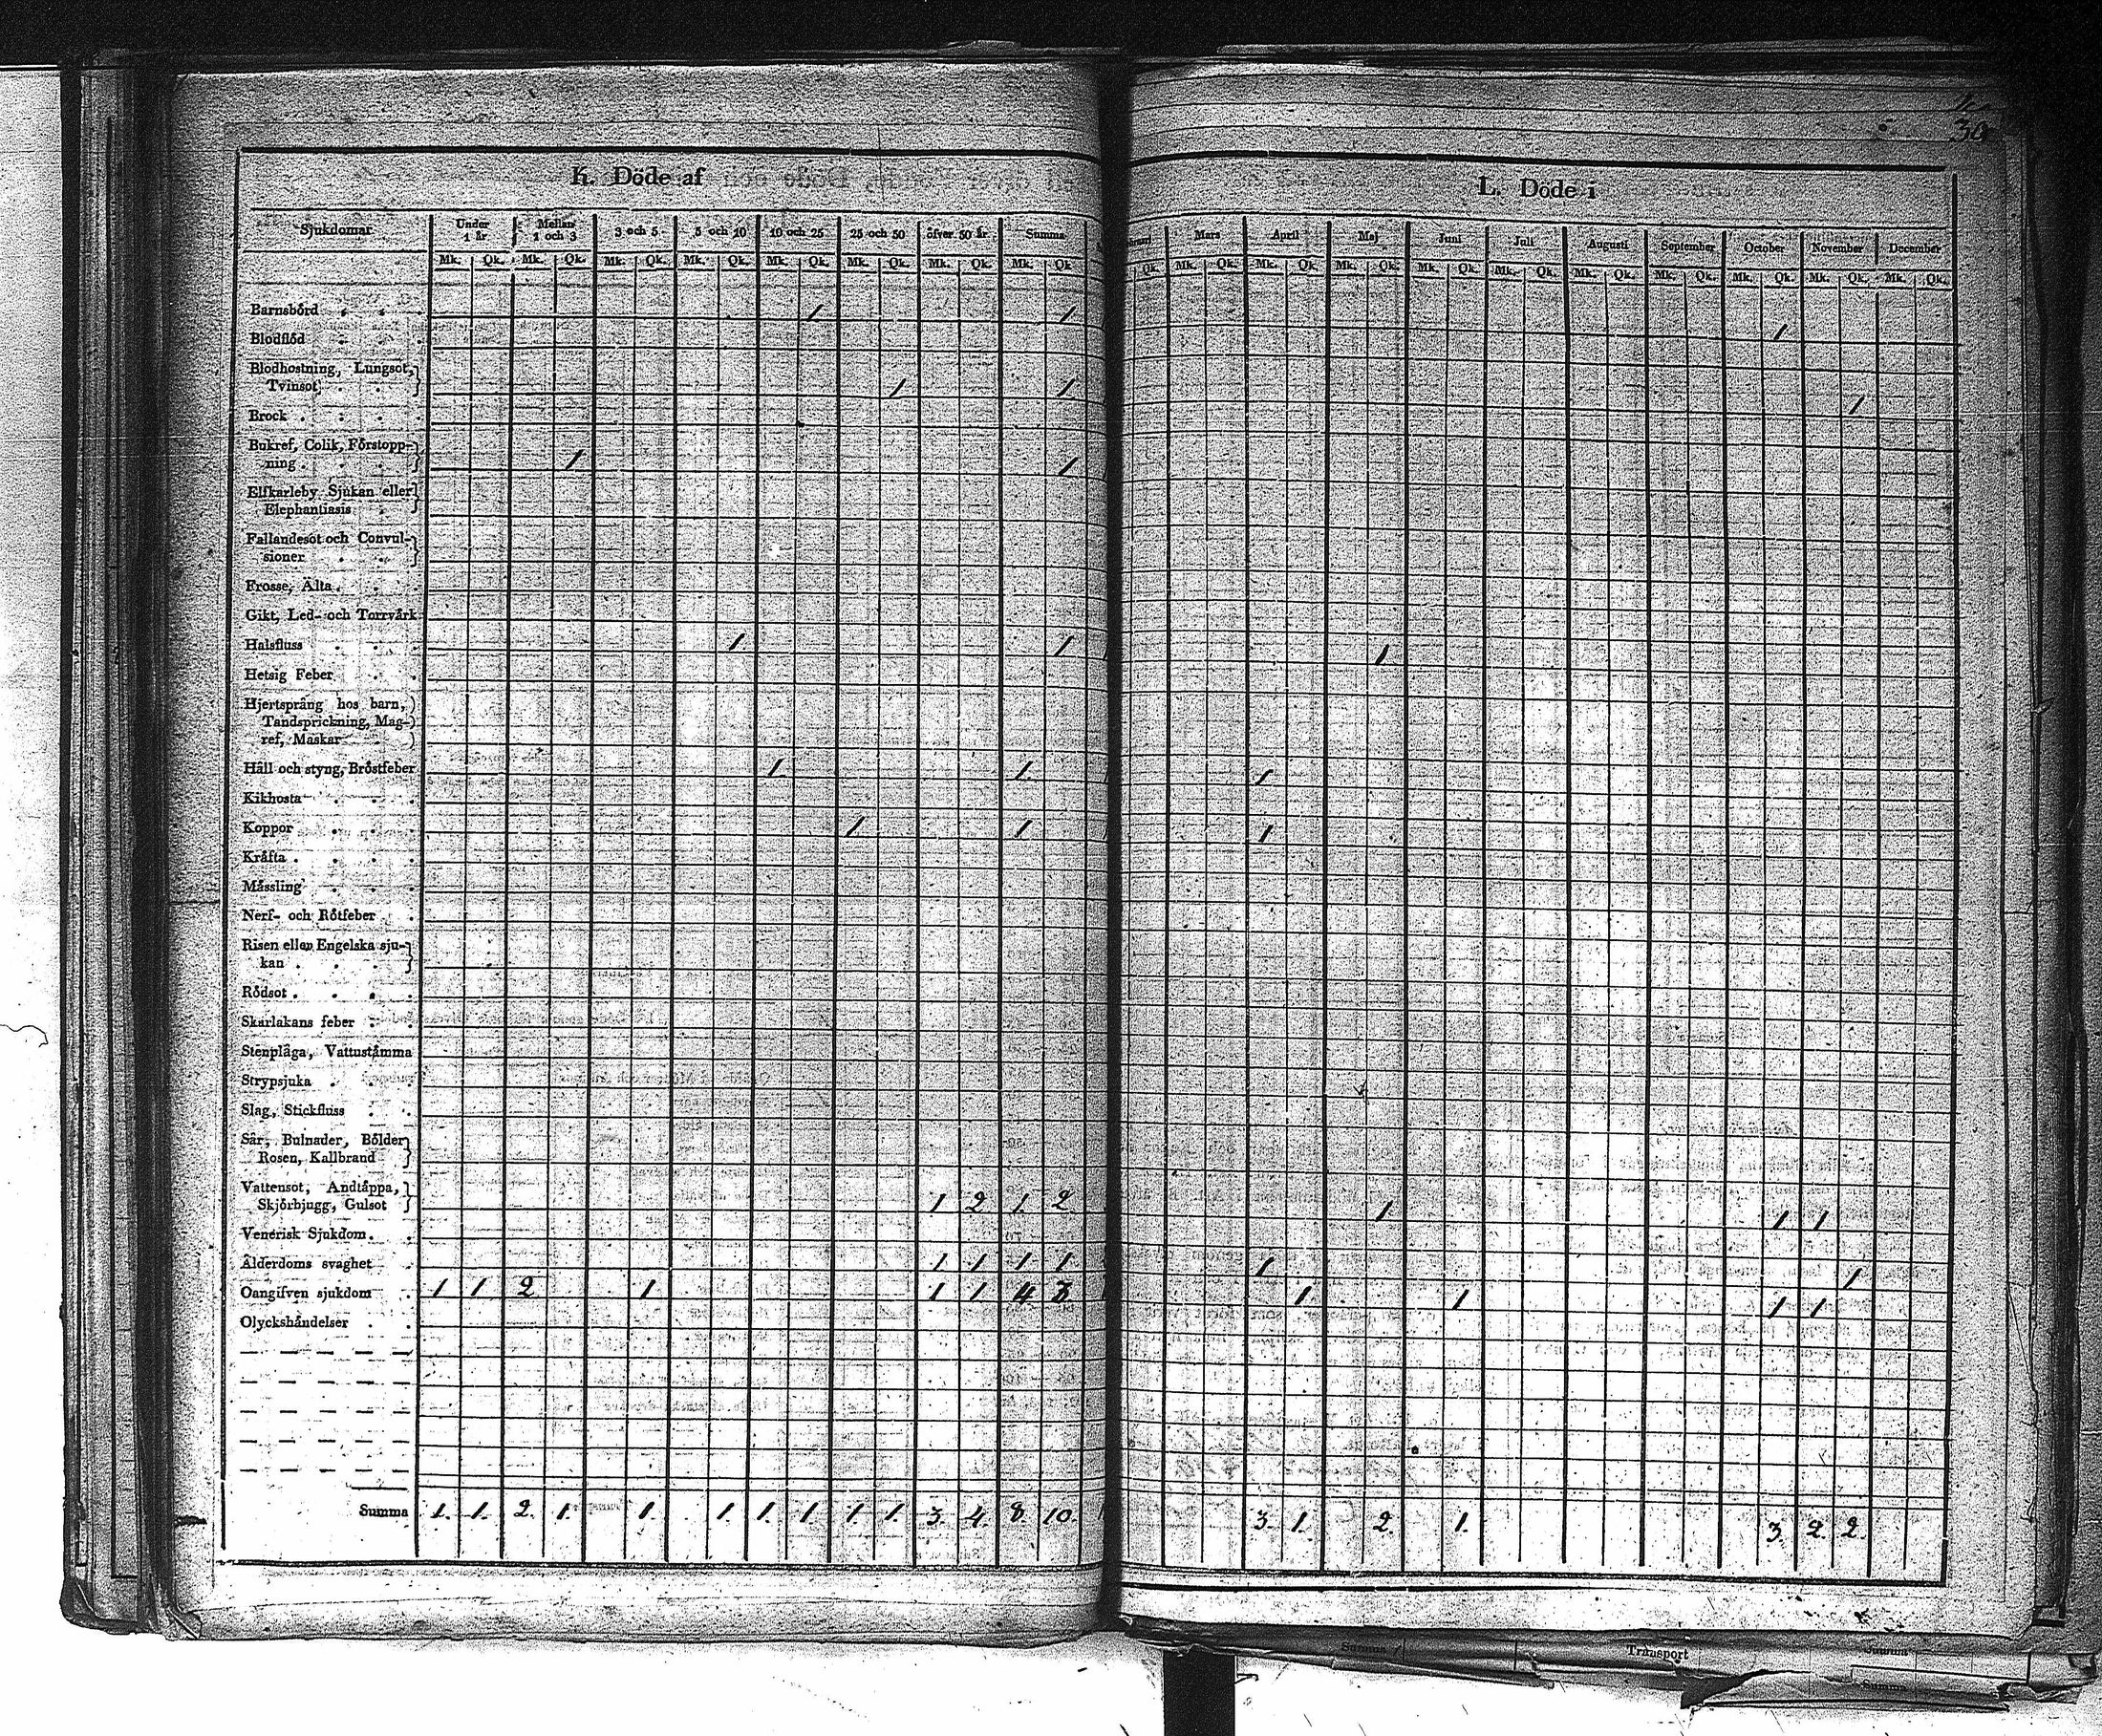 30
K. Döde af
L. Döde i
Sjukdomar Under 1 år Mellan 1 och 3 3 och 5 5 och 10 10 och 25 25 och 50 öfver 50 år Summa
Mars April Maj Juni Juli Augusti September October November December
Mk. Qk. Mk. Qk. Mk. Qk. Mk. Qk. Mk. Qk. Mk. Qk. Mk. Qk. Mk. Qk.
Qk. Mk. Qk. Mk. Qk. Mk. Qk. Mk. Qk. Mk. Qk. Mk. Qk. Mk. Qk. Mk. Qk. Mk. Qk. Mk. Qk.
Barnsbörd 1 1 1
Blodflöd
Blodhostning, Lungsot,
Tvinsot 1 1 1
Brock
Bukref, Colik, Förstopp-
ning 1 1
Elfkarleby Sjukan eller
Elephantiasis
Fallandesot och Convul-
sioner
Frosse, Älta
Gikt, Led- och Torrvärk
Halsfluss 1 1 1
Hetsig Feber
Hjertsprång hos barn,
Tandsprickning, Mag-
ref, Maskar
Håll och styng, Bröstfeber 1 1 1
Kikhosta
Koppor 1 1 1
Kräfta
Mässling
Nerf- och Rötfeber
Risen eller Engelska sju-
kan
Rödsot
Skarlakans feber
Stenplåga, Vattustämma
Strypsjuka
Slag, Stickfluss
Sår, Bulnader, Bölder
Rosen, Kallbrand
Vattensot, Andtäppa,
Skjörbjugg, Gulsot 1 2 1 2 1 1 1
Venerisk Sjukdom
Ålderdoms svaghet 1 1 1 1 1 1
Oangifven sjukdom 1 1 2 1 1 1 4 3 1 1 1 1
Olyckshändelser
Summa 1. 1. 2. 1. 1. 1. 1. 1. 1. 1. 3. 4. 8. 10. 3. 1. 2. 1. 3. 2. 2.
Summa Transport Summa
Summa